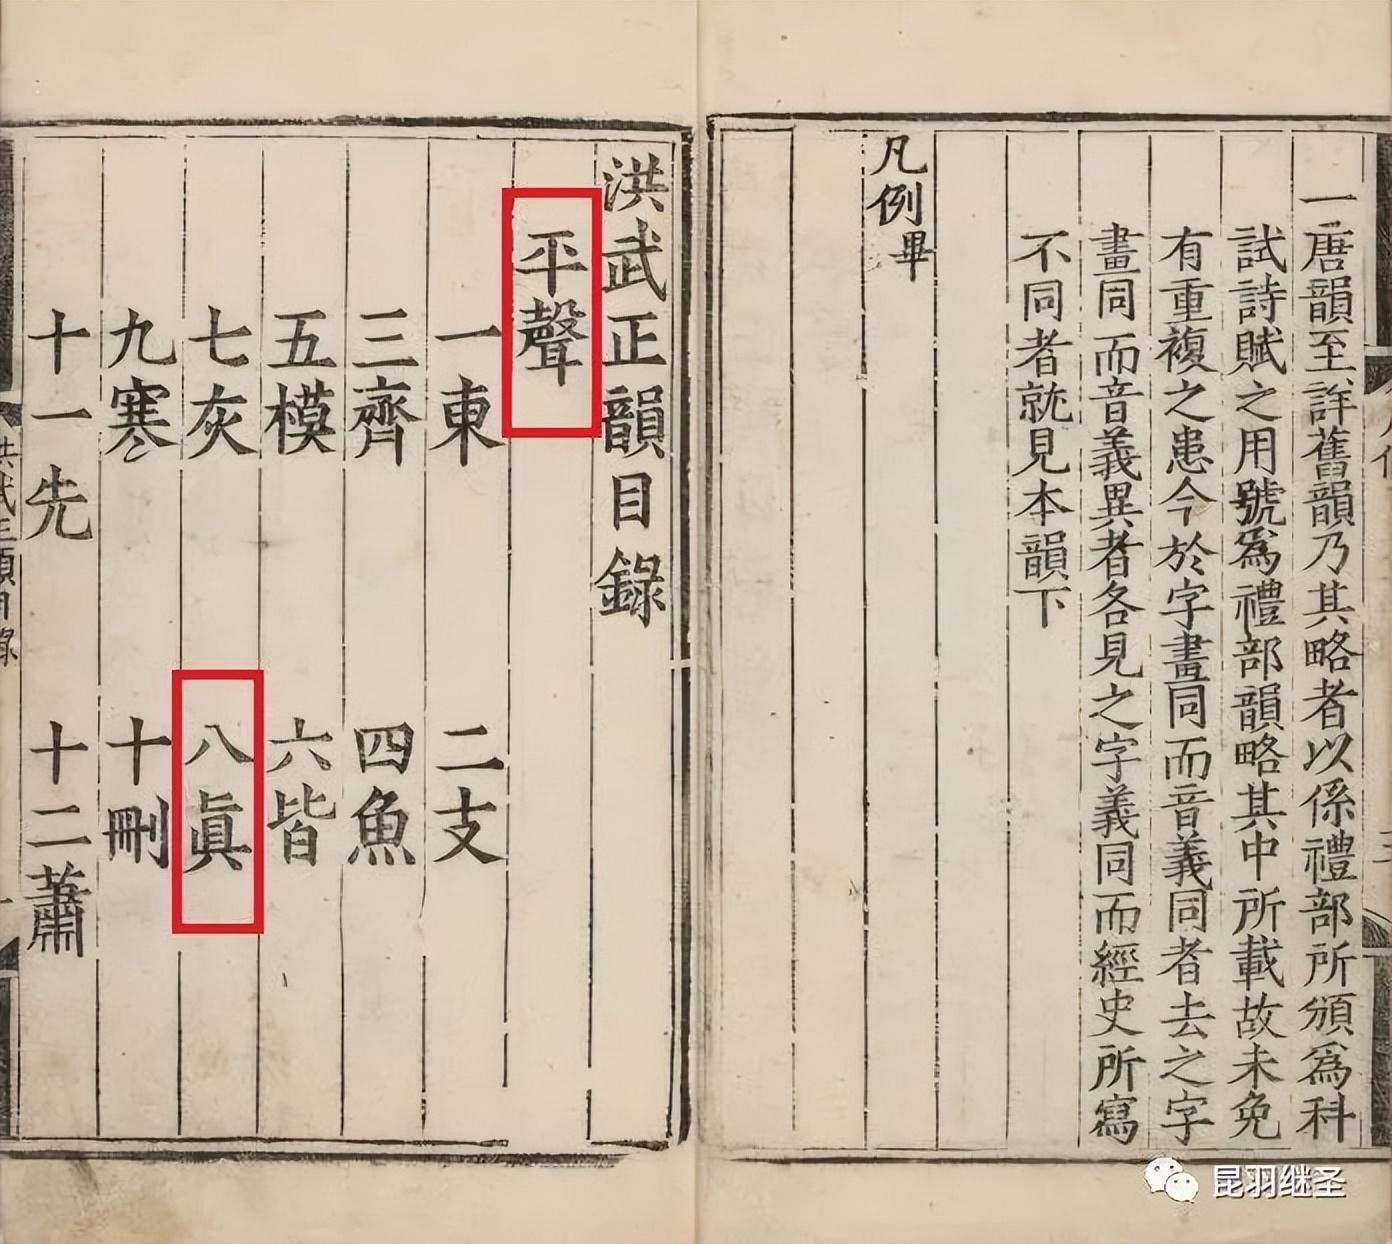 一唐韻至詳舊韻乃其略者以係禮部所頒爲科
試詩賦之用號爲禮部韻略其中所載故未免
有重複之患今於字畫同而音義同者去之字
畫同而音義異者各見之字義同而經史所寫
不同者就見本韻下
凡例畢
洪武正韻目錄
平聲
一東 二支
三齊 四魚
五模 六皆
七灰 八眞
九寒 十刪
十一先 十二蕭
昆羽继圣